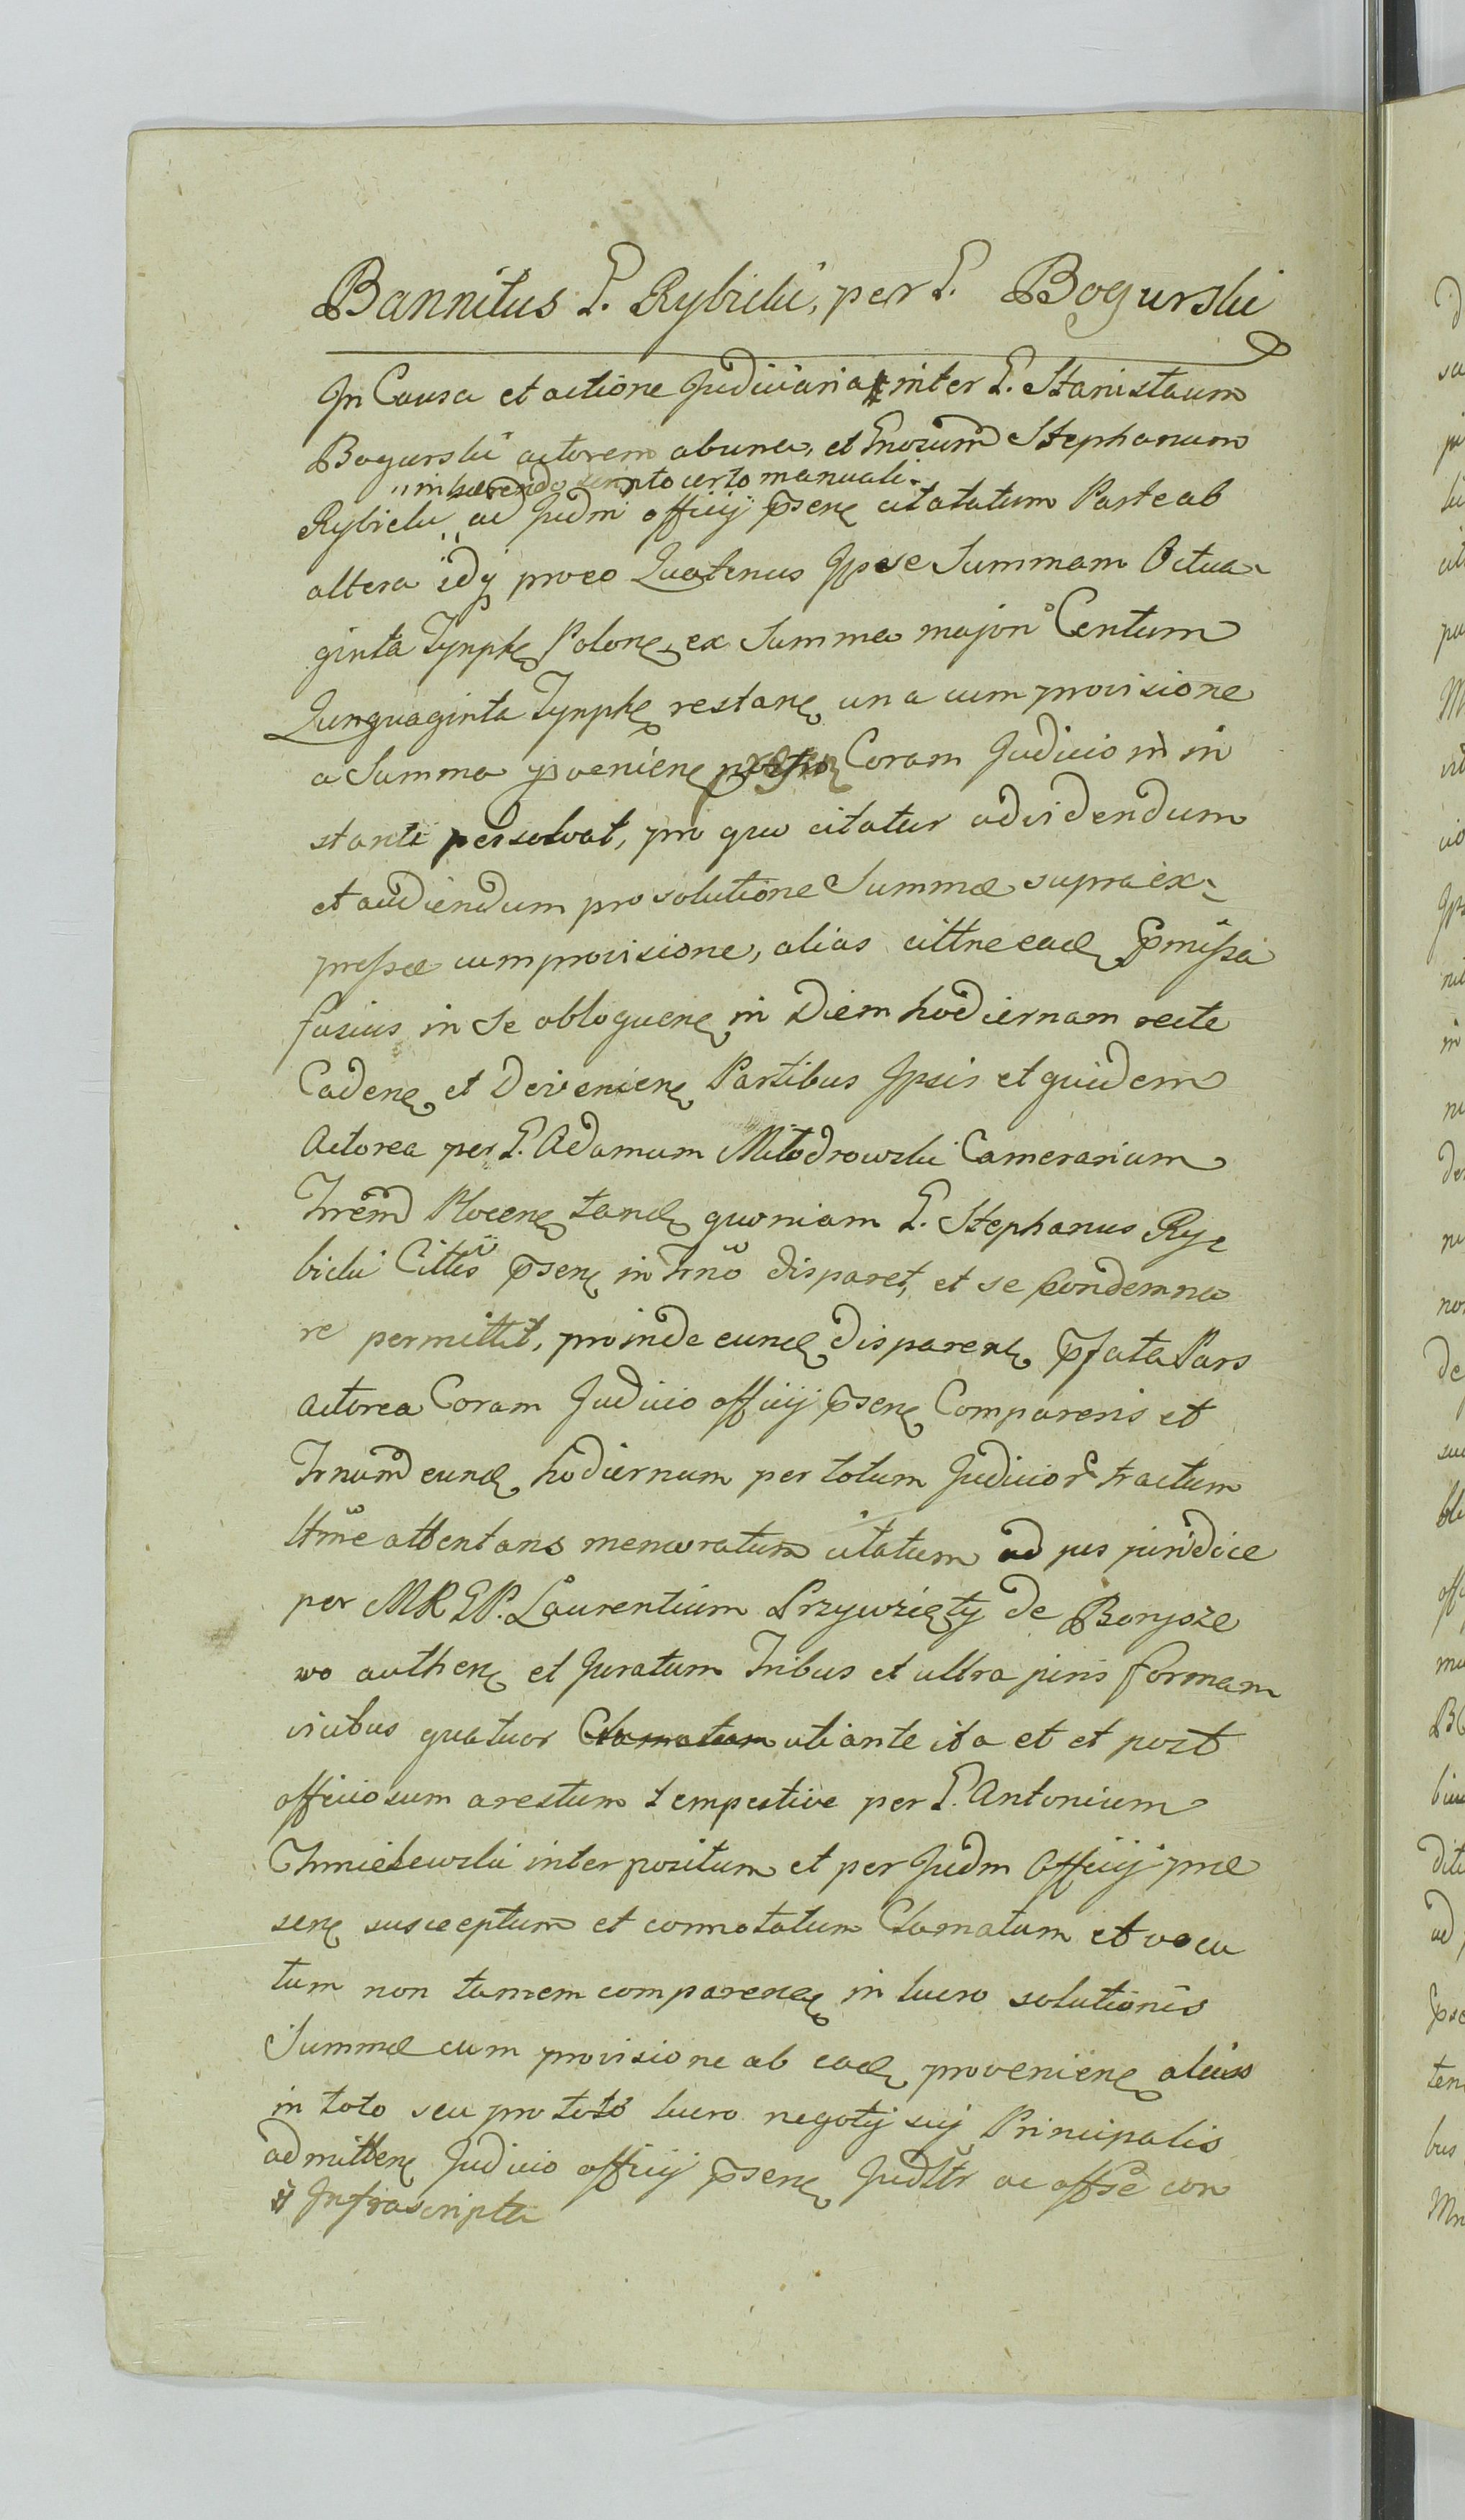 Bannitus G. Rybicki, per G. Bogurski
In Causa et actione Judiciaria inter G. Stanislaum
Bogurski actorem abuna, et Gnosum Stephanum
"inhærendo scripto certo manuali"
Rybicki " ad Judm officij p̄senę citatatum Parte ab
altera idq proeo Quatenus Ipse Summam Octua-
ginta Tynphę Polonę, ex Summa majori Centum
Quinquaginta Tynphę restanę una cum provisione
a Summa pvenienę Coram Judicio in in
stanti persolvat, pro quo citatur advidendum
et audiendum pro solutione Summæ supra ex-
pressæ cumprovisione, alias cittne eadę p̄missa
fusius in se obloquenę in Diem hodiernam recte
Cadenę et Devenienę Partibus Ipsis et quidem
Actorea per G. Adamum Miłodrowski Camerarium
Trrem̄ Plocenę tandę quoniam G. Stephanus Ry-
bicki Citts p̄senę in Trno disparet, et se Condemna
re permittit, proinde eundę disparenę p̄fata Pars
actorea Coram Judicio officij p̄senę Comparens et
Trnum eundę hodiernum per totum Judicior tractum
Ittme attentans memoratum citatum ad jus juridice
per MRGP. Laurentium Przywzięty de Borysze
wo authenę et Juratum Tribus et ultra juris formam
vicibus quatuor Clamatum uti ante ita et et post
officiosum arestum tempestive per G. Antonium
Chmielewski interpositum et per Judm Officij præ
senę susceptum et connotatum Clamatum et voca
tum non tamem comparenę in lucro solutionis
Summæ cum provisione ab eadę provenienę aliàs
in toto seu pro toto lucro negotij sui Principalis
admittenę Judicio officij p̄senę Judltr ac offse con
Infrascripta